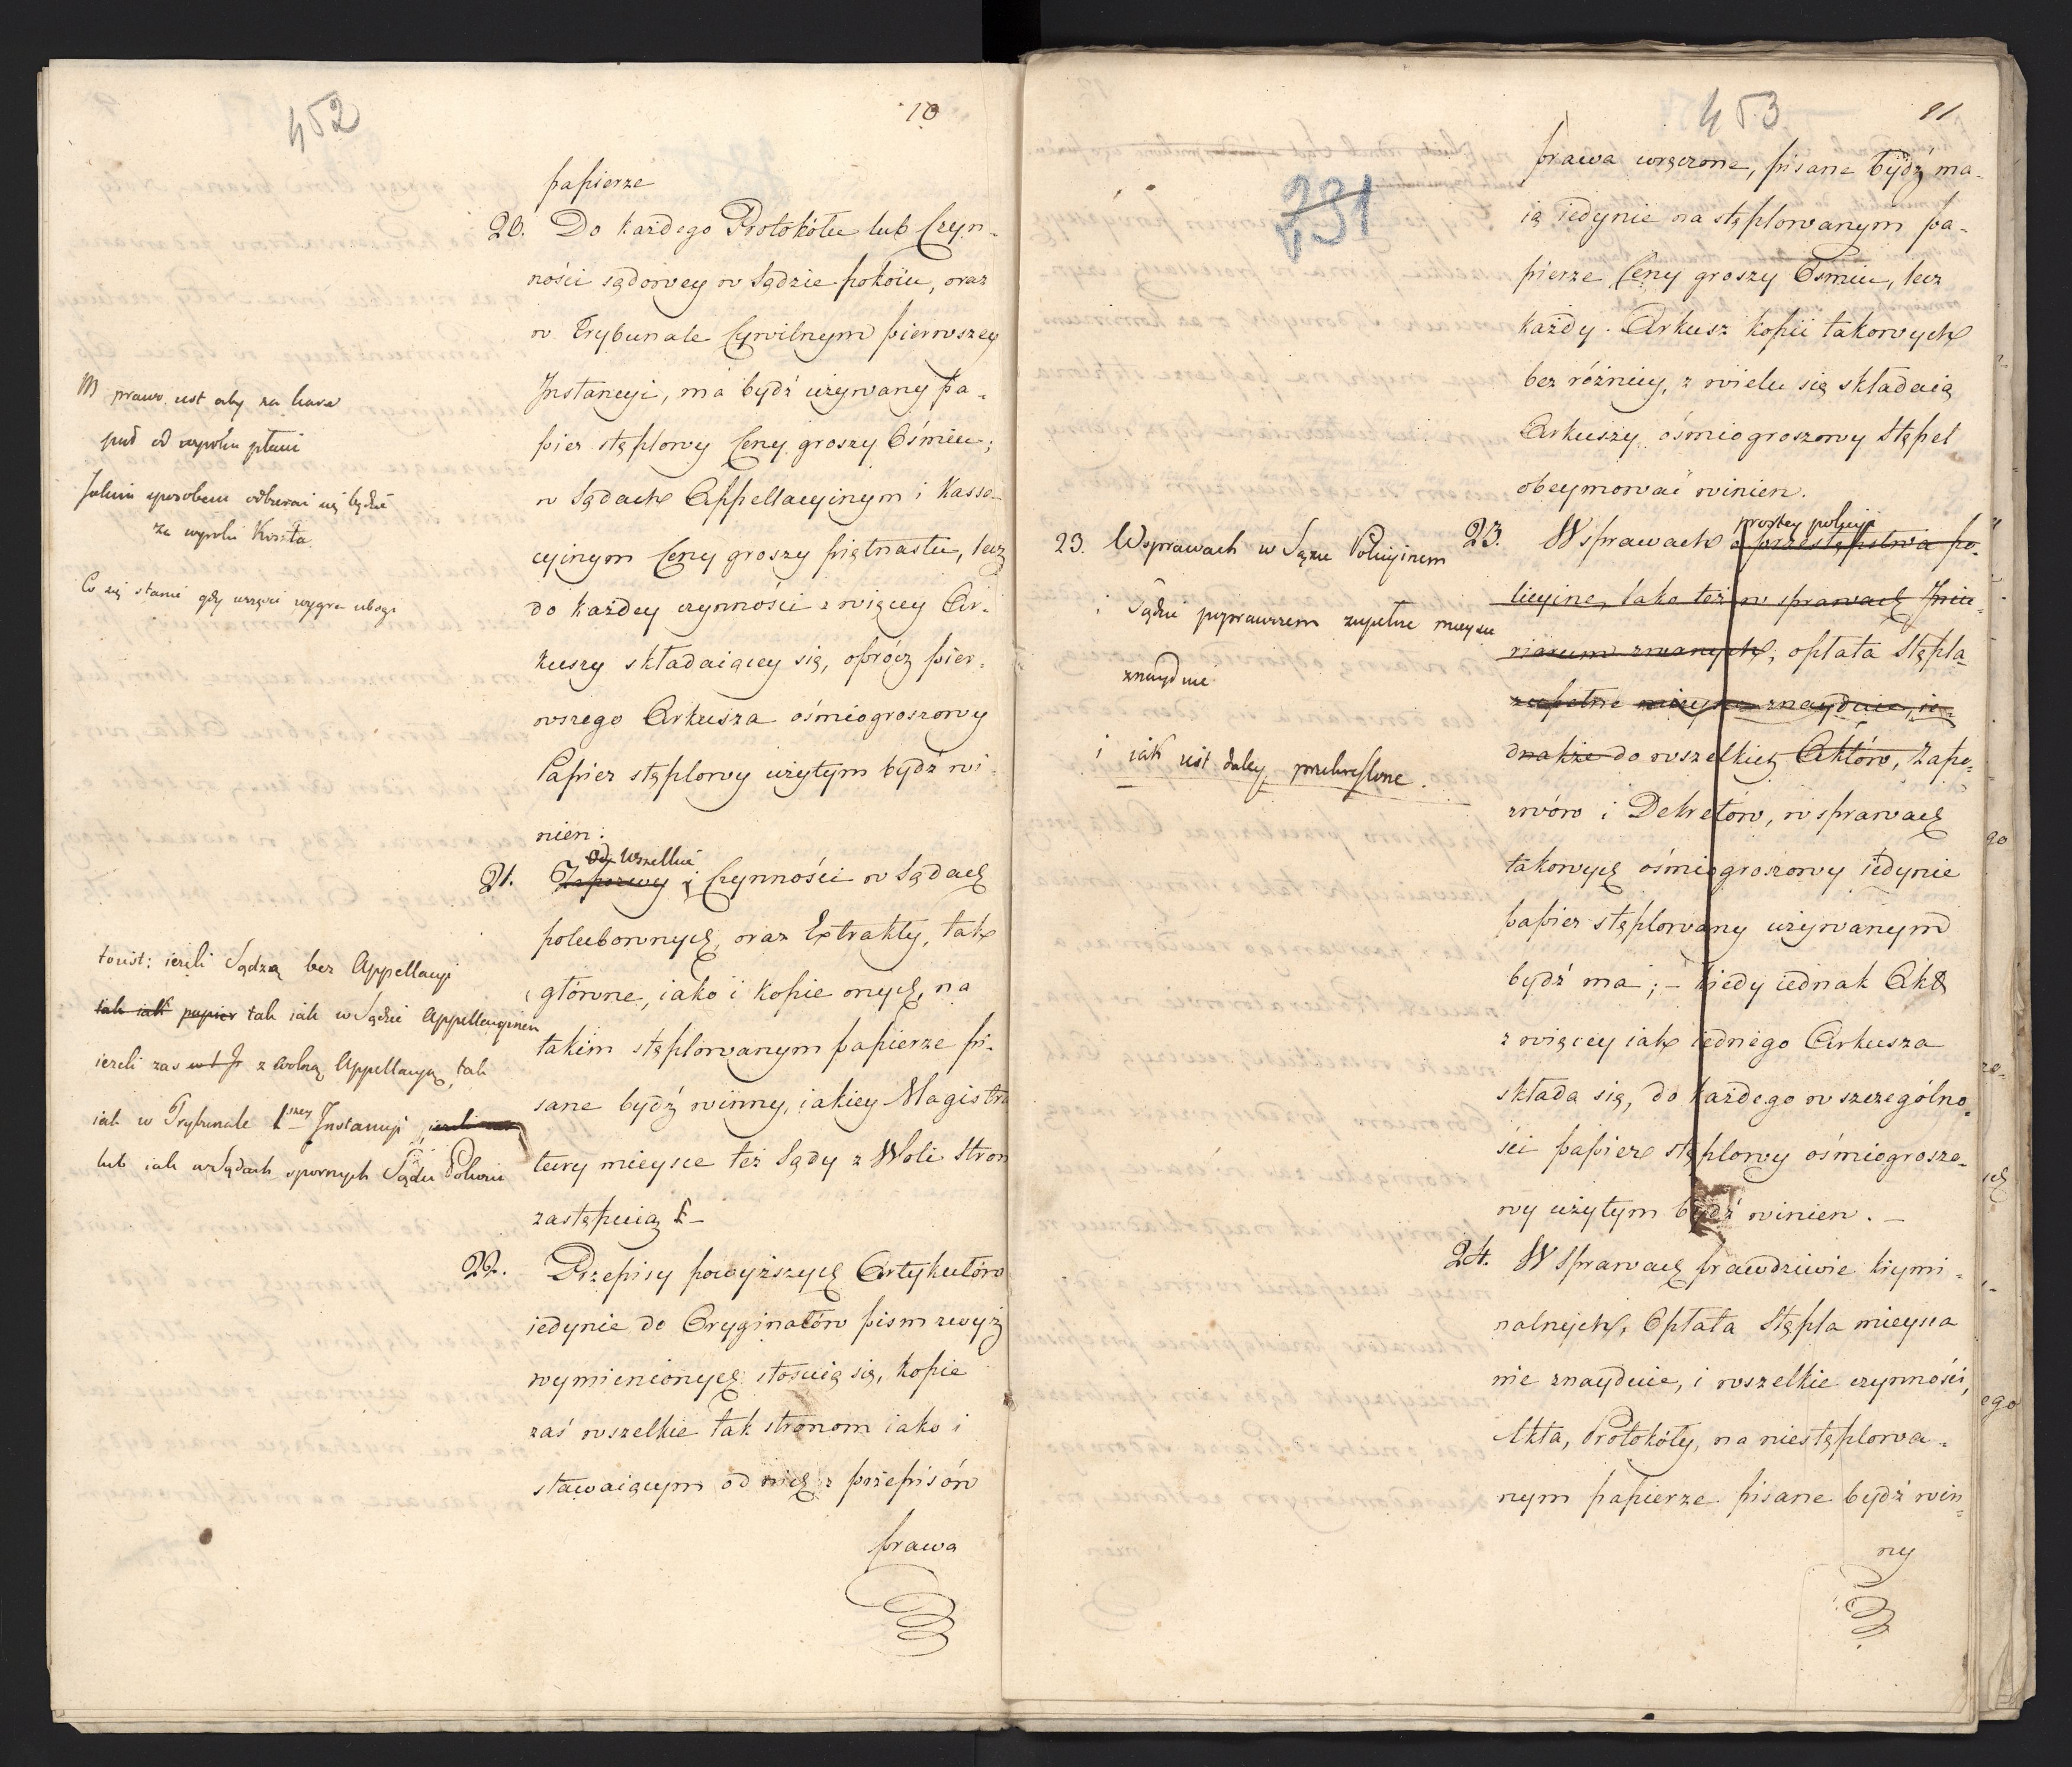 452
10
papierze
20. Do każdego Protokółu lub Czyn-
ności sądowey w Sądzie pokoiu, oraz
w Trybunale Cywilnym pierwszey
Instancyi, ma bydź używany pa-
pier stęplowy Ceny groszy Ośmiu;
w Sądach Appellacyinym i Kassa-
cyinym Ceny groszy piętnastu, lecz
do każdey czynności z więcey Ar-
kuszy składaiącey się, oprócz pier-
wszego Arkusza ośmiogroszowy
Papier stęplowy użytym bydź wi-
nien.
Od wszelkich
21. Zapozwy i Czynności w Sądach
polubownych, oraz Extrakty, tak
główne, iako i kopie onych, na
takim stęplowanym papierze pi-
sane bydź winny, iakiey Magistra
tury mieysce też Sądy z Woli Stron
zastępuią
22. Przepisy powyższych Artykułów
iedynie do Oryginałów pism zwyż
wymienionych stosuią się, kopie
zaś wszelkie tak stronom iako i
stawaiącym od nich z przepisów
prawa
prawo iest aby za
od wpisu
sposobem odbierać się będzie
za wpisu
Co się stanie gdy wygra ubogi
to iest: ieżeli Sądzą bez Appellacyi
tak iak papier tak iak w Sądzie Appellacyinem
ieżeli zas z wolną Appellacyą, tak
iak w Trybunale 1szey Instancyi
lub iak w Sądach spornych Sądu Pokoiu
453
11
231
prawa wręczone, pisane bydź ma-
ią iedynie na stęplowanym pa-
pierze Ceny groszy Ośmiu, lecz
każdy Arkusz kopii takowych
bez różnicy, z wielu się składaią
Arkuszy, ośmiogroszowy Stępel
obeymować winien.
prostey policyi
23. W sprawach o przestępstwa po-
licyine, iako też w sprawach Iniu-
riarum zwanych, opłata Stępla
zupełnie mieysca znayduie, ie-
dnakże do wszelkich Aktów, Zapo-
zwów i Dekretów, w sprawach
takowych ośmiogroszowy iedynie
papier stęplowany używanym
bydź ma; - kiedy iednak Akt
z więcey iak iednego Arkusza
składa się, do każdego w szczególno-
ści papier stęplowy ośmiogroszo-
wy użytym bydź winien. -
24. W Sprawach prawdziwie krymi-
nalnych, Opłata Stępla mieysca
nie znayduie, i wszelkie czynności,
Akta, Protokóły, na niestęplowa-
nym papierze pisane bydź win-
ny
23. W sprawach w Sądzie Policyinem
i Sądzie poprawczem zupełne mieysce
znayduie
i iak iest daley przekreślone.